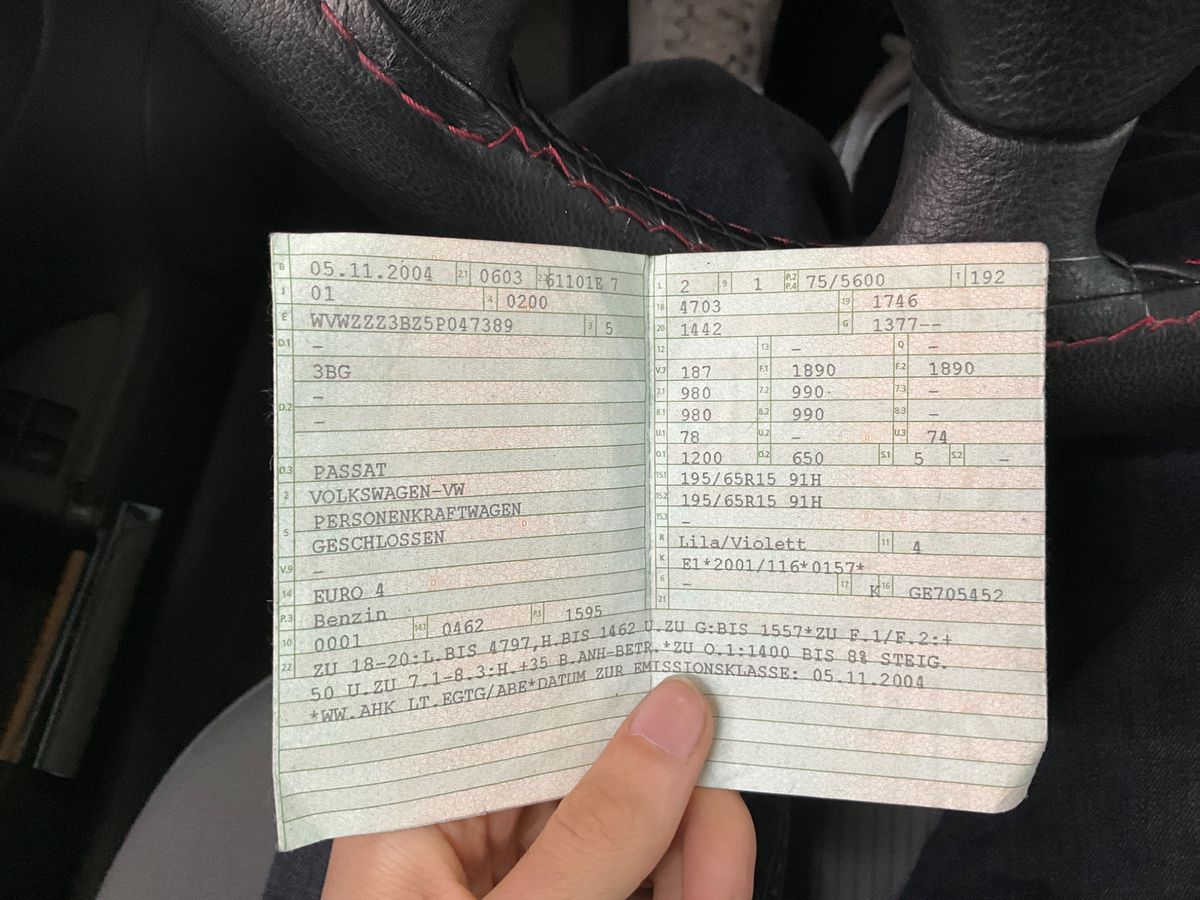 B 05.11.2004 2.1 0603 2.2 61101E 7
J 01 4 0200
E WVWZZZ3BZ5P047389 3 5
D.1 –
3BG
–
D.2 –
D.3 PASSAT
2 VOLKSWAGEN-VW
5 PERSONENKRAFTWAGEN
GESCHLOSSEN
V.9 –
14 EURO 4
P.3 Benzin
10 0001 14.1 0462 P.1 1595
L 2 9 1 P.2 P.4 75/5600 T 192
18 4703 19 1746
20 1442 G 1377--
12 13 – Q –
V.7 187 F.1 1890 F.2 1890
7.1 980 7.2 990 7.3 –
8.1 980 8.2 990 8.3 –
U.1 78 U.2 – U.3 74
O.1 1200 O.2 650 S.1 5 S.2 –
15.1 195/65R15 91H
15.2 195/65R15 91H
15.3 –
R Lila/Violett 11 4
K E1*2001/116*0157*
6 – 17 K 16 GE705452
21
22 ZU 18-20:L.BIS 4797,H.BIS 1462 U.ZU G:BIS 1557*ZU F.1/F.2:+
50 U.ZU 7.1-8.3:H.+35 B.ANH-BETR.*ZU O.1:1400 BIS 8% STEIG.
*WW.AHK LT.EGTG/ABE*DATUM ZUR EMISSIONSKLASSE: 05.11.2004